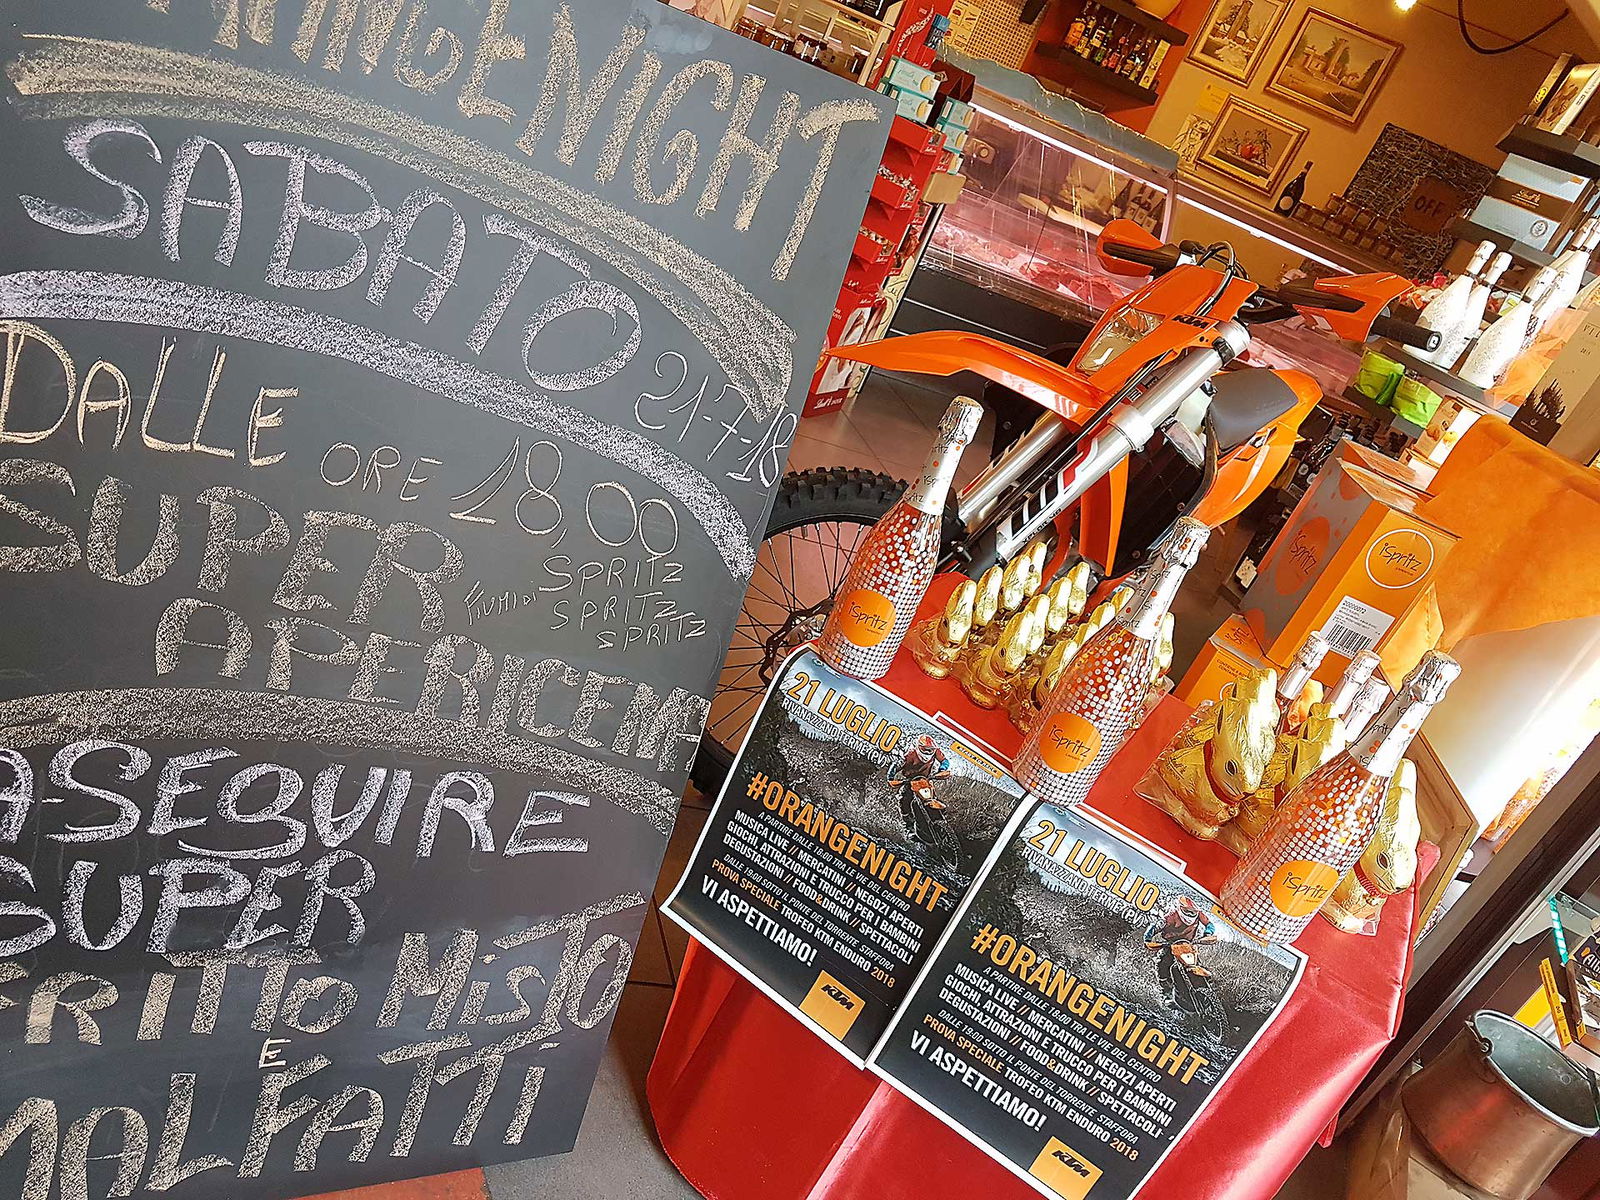 SABATO
21-7-18
DALLE ORE 18,00
SUPER
FIUMI DI SPRITZ
SPRITZ
SPRITZ
APERICENA
A SEGUIRE
SUPER
FRITTO MISTO
E
MALFATTI
KTM
OFF
iSpritz
iSpritz
iSpritz
iSpritz
iSpritz
21 LUGLIO
RIVANAZZANO TERME (PV)
#ORANGENIGHT
A PARTIRE DALLE 18:00 TRA LE VIE DEL CENTRO
MUSICA LIVE // MERCATINI // NEGOZI APERTI
GIOCHI, ATTRAZIONI E TRUCCO PER I BAMBINI
DEGUSTAZIONI // FOOD&DRINK // SPETTACOLI
DALLE 19:00 SOTTO IL PONTE DEL TORRENTE STAFFORA
PROVA SPECIALE TROFEO KTM ENDURO 2018
VI ASPETTIAMO!
KTM
21 LUGLIO
RIVANAZZANO TERME (PV)
#ORANGENIGHT
A PARTIRE DALLE 18:00 TRA LE VIE DEL CENTRO
MUSICA LIVE // MERCATINI // NEGOZI APERTI
GIOCHI, ATTRAZIONI E TRUCCO PER I BAMBINI
DEGUSTAZIONI // FOOD&DRINK // SPETTACOLI
DALLE 19:00 SOTTO IL PONTE DEL TORRENTE STAFFORA
PROVA SPECIALE TROFEO KTM ENDURO 2018
VI ASPETTIAMO!
KTM